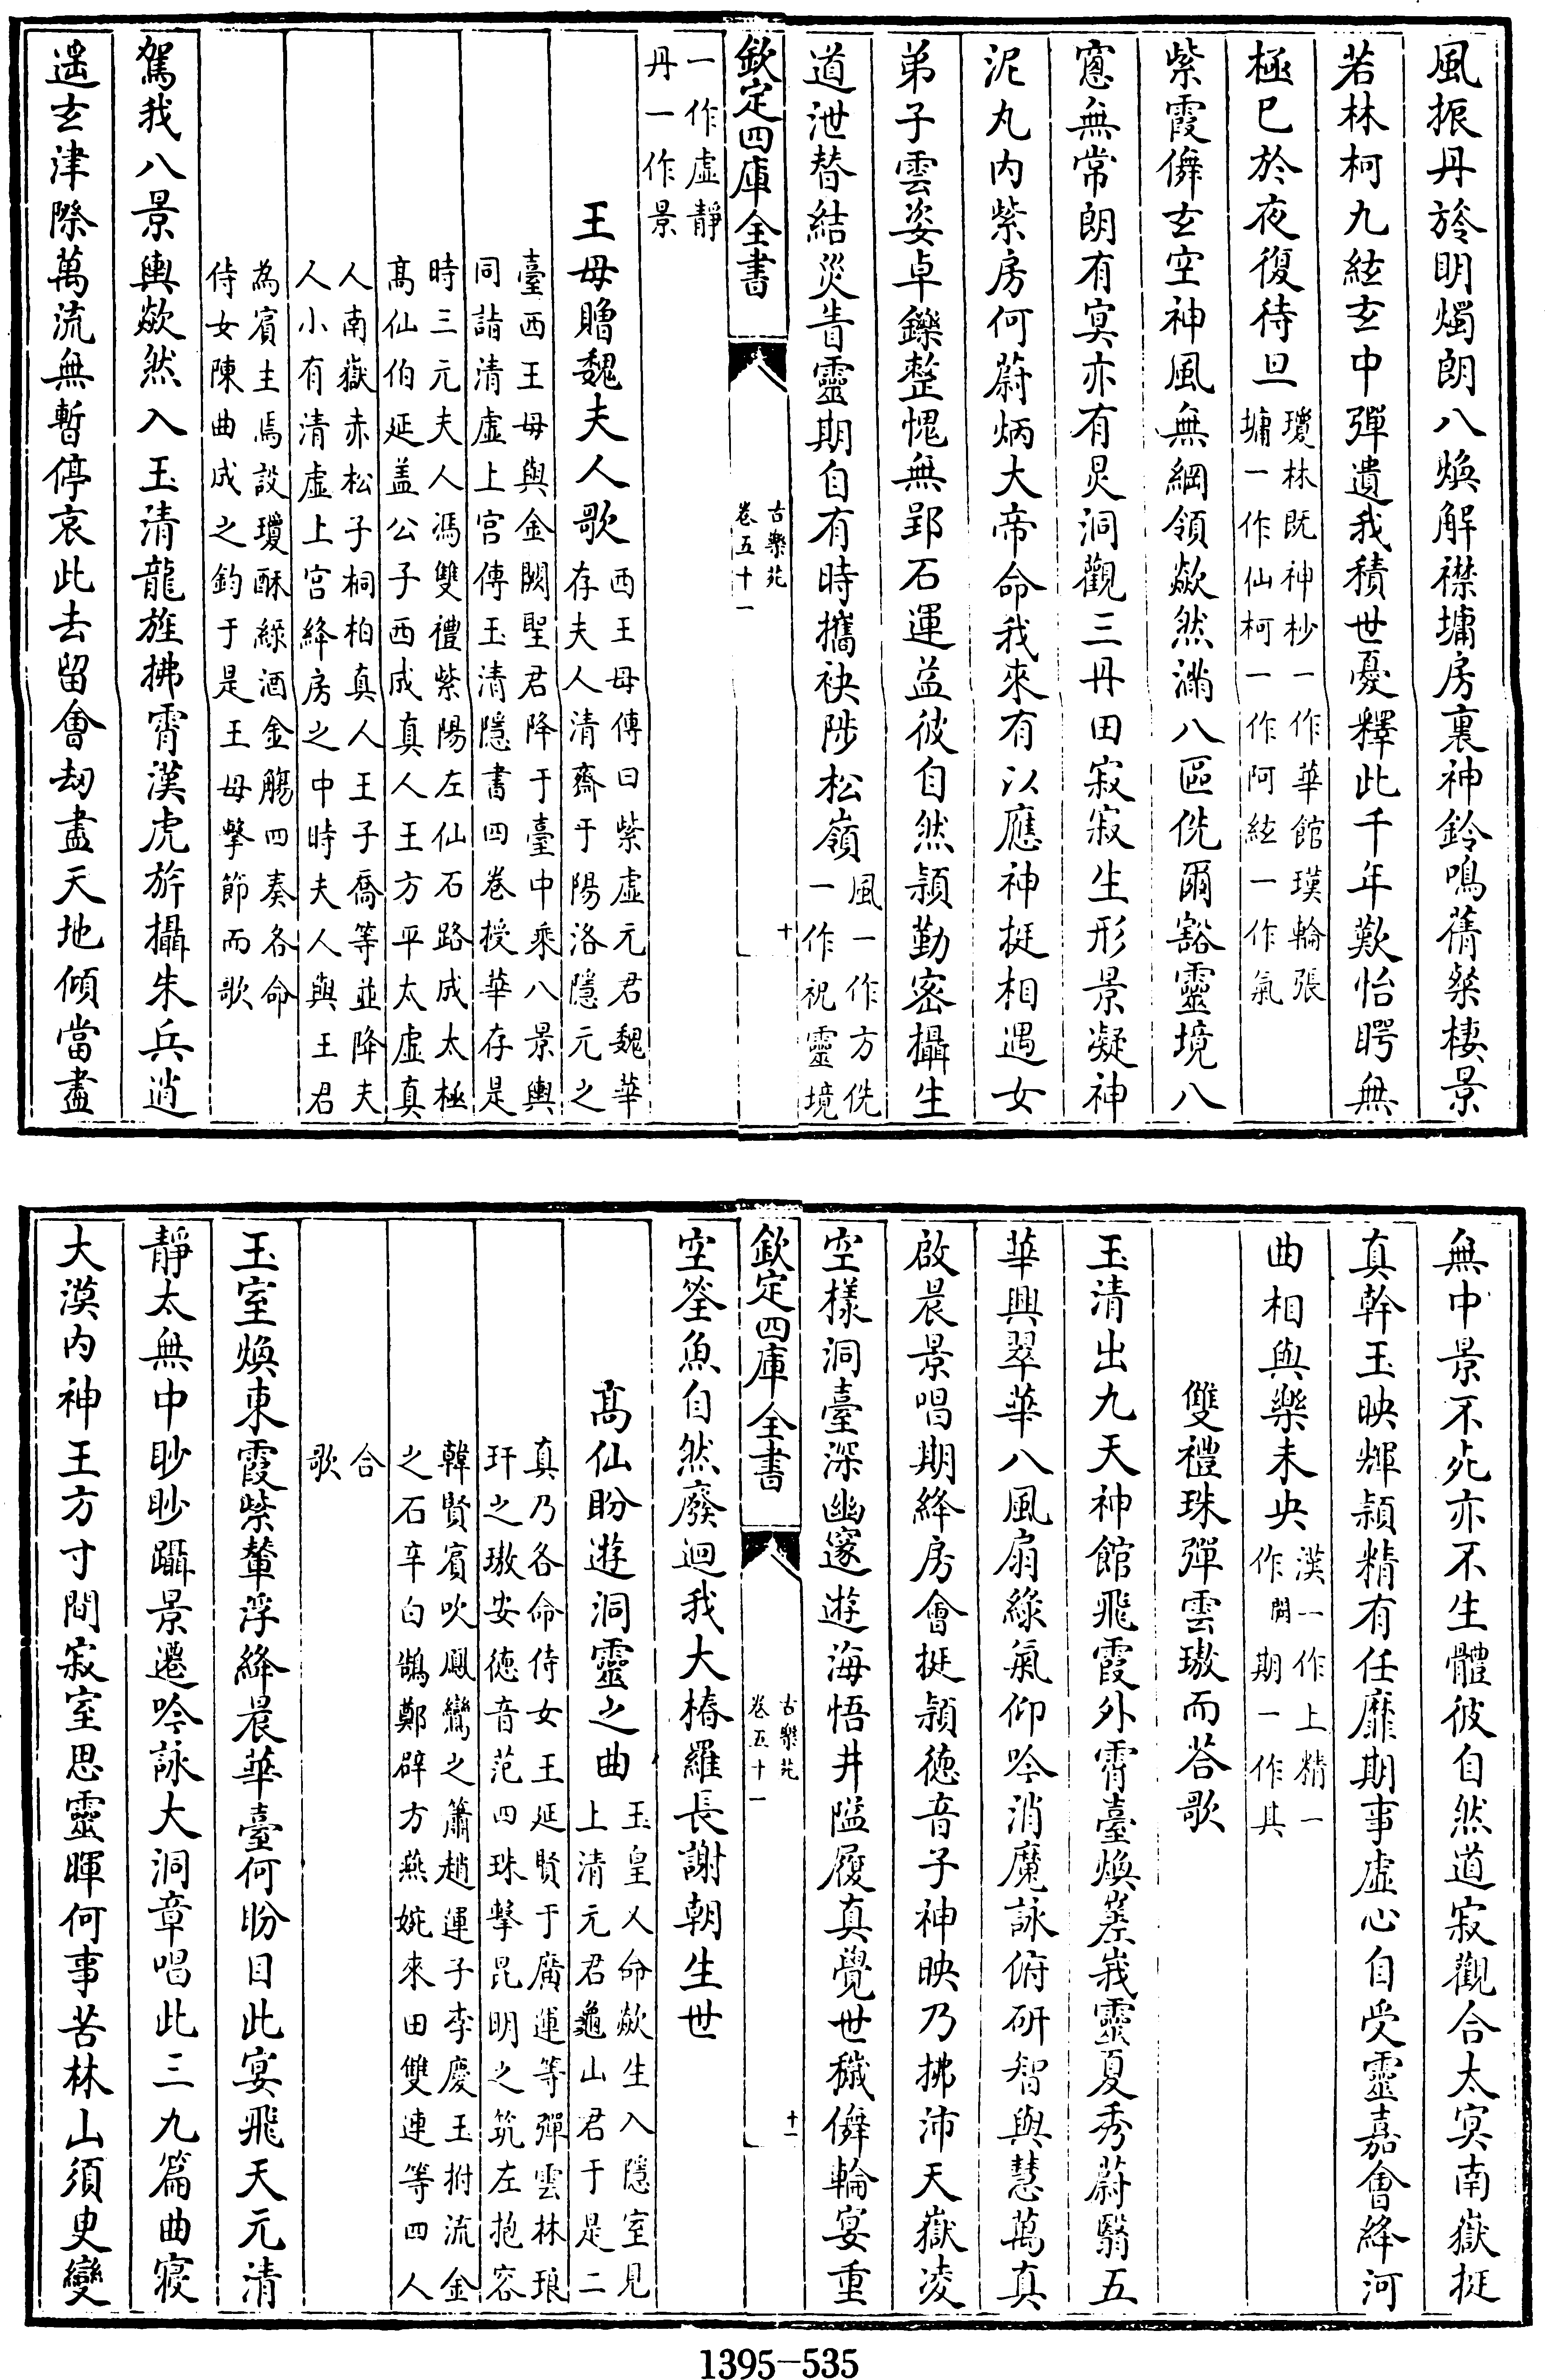 風振丹旍明燭朗八煥解襟墉房裏神鈴鳴蒨粲棲景
若林柯九絃玄中彈遺我積世憂釋此千年歎怡眄無
極已於夜復待旦瓊林既神杪一作華館璞輪張
墉一作仙柯一作阿絃一作氣
紫霞儛玄空神風無綱領歘然滿八區佹爾豁靈境八
窻無常朗有冥亦有炅洞觀三丹田寂寂生形景凝神
泥丸內紫房何蔚炳大帝命我來有以應神挺相遇女
弟子雲姿卓鑠整愧無郢石運益彼自然頴勤密攝生
道泄替結災眚靈期自有時攜袂陟松嶺風一作方佹
一作祝靈境
欽定四庫全書
古樂苑
卷五十一
十
一作虛靜
丹一作景
王母贈魏夫人歌西王母傳曰紫虛元君魏華
存夫人清齋于陽洛隱元之
臺西王母與金闕聖君降于臺中乘八景輿
同詣清虛上宮傳玉清隱書四卷授華存是
時三元夫人馮雙禮紫陽左仙石路成太極
高仙伯延盖公子西成真人王方平太虛真
人南嶽赤松子桐柏真人王子喬等並降夫
人小有清虛上宮絳房之中時夫人與王君
為賓主焉設瓊酥綠酒金觴四奏各命
侍女陳曲成之鈞于是王母擊節而歌
駕我八景輿歘然入玉清龍旌拂霄漢虎旂攝朱兵逍
遥玄津際萬流無暫停哀此去留會刼盡天地傾當盡
無中景不死亦不生體彼自然道寂觀合太冥南嶽挺
真幹玉映輝頴精有任靡期事虛心自受靈嘉會絳河
曲相與樂未央漢一作上精一
作開期一作其
雙禮珠彈雲璈而荅歌
玉清出九天神館飛霞外霄臺煥嵳峩靈夏秀蔚翳五
華興翠華八風扇綠氣仰吟消魔詠俯研智與慧萬真
啟晨景唱期絳房會挺頴德音子神映乃拂沛天嶽凌
空樣洞臺深幽邃遊海悟井隘履真覺世穢儛輪宴重
欽定四庫全書
古樂苑
卷五十一
十一
空筌魚自然廢迴我大椿羅長謝朝生世
高仙盼遊洞靈之曲玉皇乂命歘生入隱室見
上清元君龜山君于是二
真乃各命侍女王延賢于廣運等彈雲林琅
玕之璈安德音范四珠擊昆明之筑左抱容
韓賢賓吹鳳鸞之簫趙運子李慶玉拊流金
之石辛白鵠鄭辟方燕婉來田雙連等四人
合
歌
玉室煥東霞紫輦浮絳晨華臺何盼目此宴飛天元清
靜太無中眇眇躡景遷吟詠大洞章唱此三九篇曲寢
大漠內神王方寸間寂室思靈暉何事苦林山須臾變
1395-535